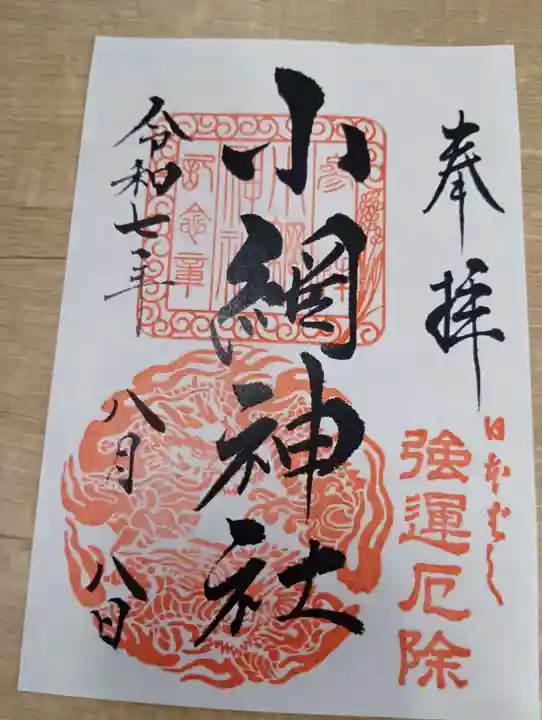 奉拝
日本ばし
強運厄除
小網神社
令和七年
八月
八日